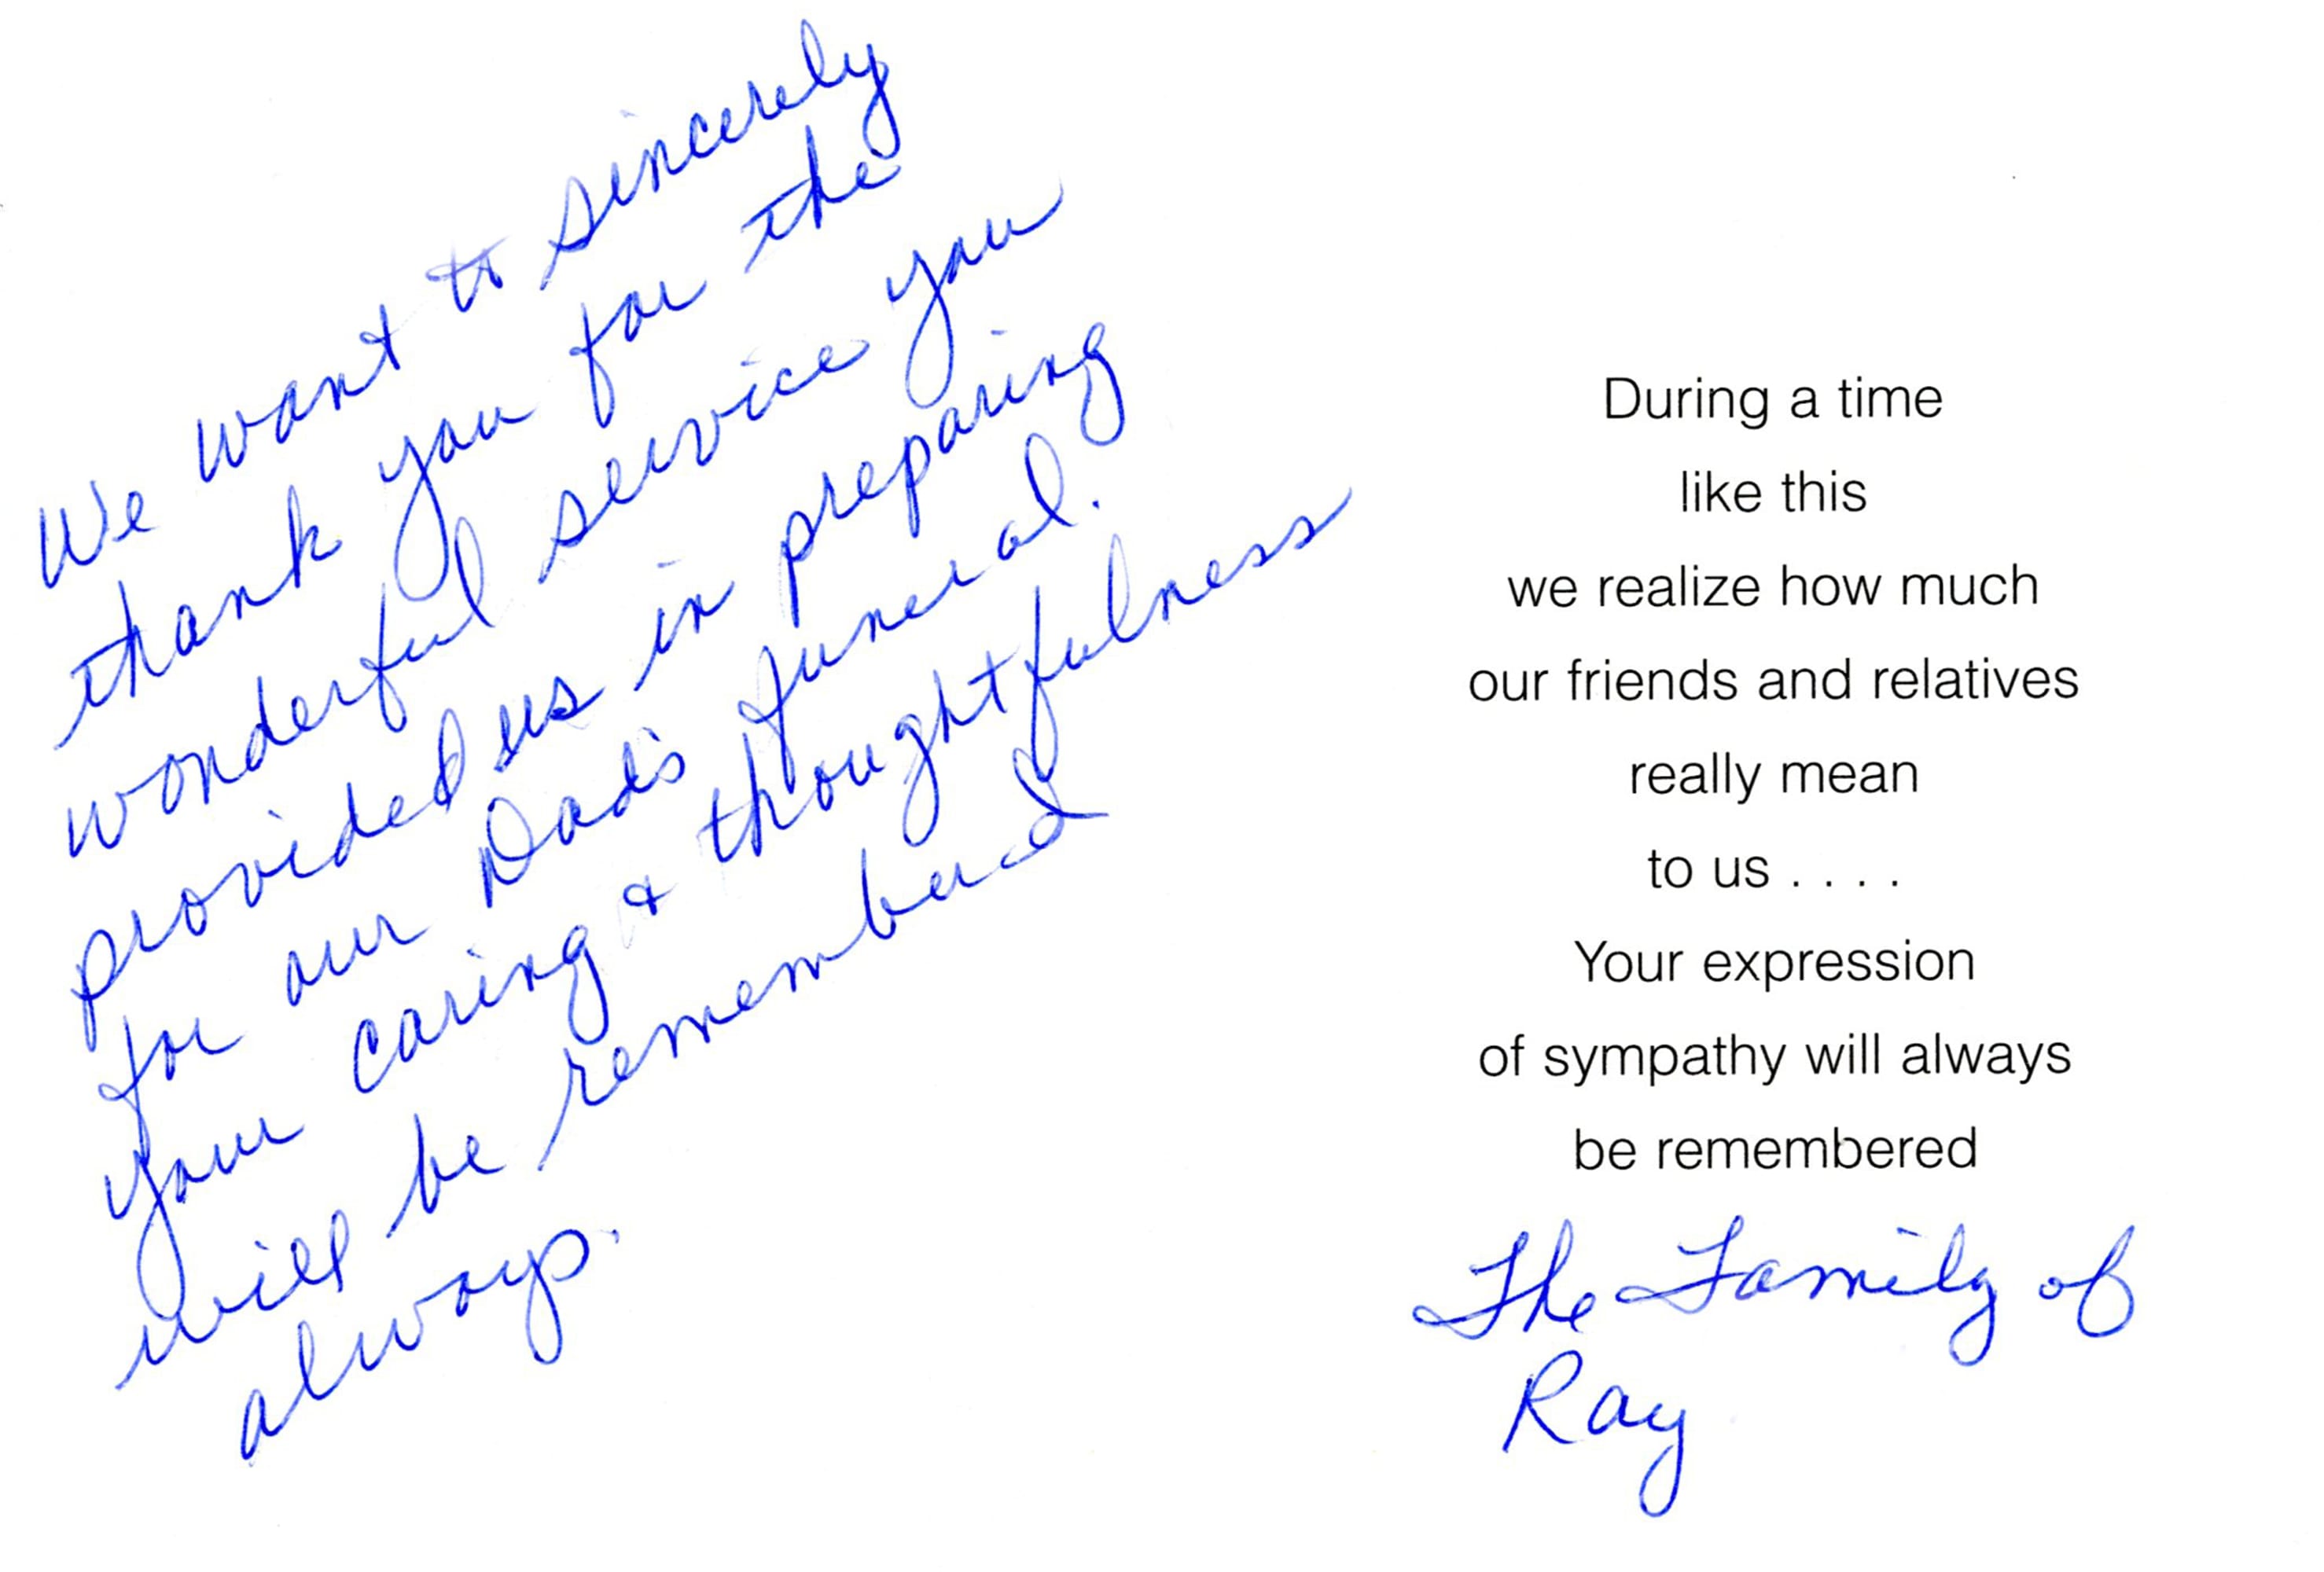 We want to sincerely
thank you for the
wonderful service you
provided us in preparing
for our Dad's funeral.
your caring & thoughtfulness
will be remembered
always.
During a time
like this
we realize how much
our friends and relatives
really mean
to us . . . .
Your expression
of sympathy will always
be remembered
The Family of
Ray